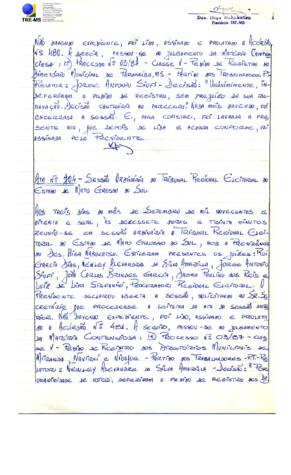 TRE-MS
Des. Higa Nabukatsu
Presidente TRE-MS
Não havendo expediente, foi lido, assinado e publicado o Acórdão
nº 480. A seguir, passou-se ao julgamento da matéria conten-
ciosa: 1) Processo nº 00/87 - Classe V - Pedido de Registro do
Diretório Municipal de - MS - Partido dos Trabalhadores
Jorge Antonio Siufi - Decisão: "Unanimemente, in-
deferiram o pedido de registro, sem prejuízo de sua re-
novação. Decisão contrária ao parecer." Nada mais havendo, foi
encerrada a sessão. E, para constar, foi lavrada a pre-
sente ata, que depois de lida e achada conforme, foi
assinada pelo Presidente.
Ata nº - Sessão Ordinária do Tribunal Regional Eleitoral do
Estado de Mato Grosso do Sul
Aos três dias do mês de setembro de mil novecentos e
oitenta e sete, às dezessete horas e trinta minutos
reuniu-se em sessão ordinária o Tribunal Regional Eleito-
ral do Estado de Mato Grosso do Sul, sob a Presidência
do Des. Higa Nabukatsu. Estiveram presentes os Juízes: Rui
Garcia Dias, Nerley Alexandre da Silva Amarilha, Jorge Antonio
Siufi, João Carlos Brandes Garcia, Jaime dos Reis e
Luiz de Lima Stefanini, Procurador Regional Eleitoral. O
Presidente declarou aberta a sessão, solicitando ao Sr. Se-
cretário que procedesse a leitura da ata da sessão ante-
rior. Não havendo expediente, foi lido, assinado e publica-
do o Acórdão nº 481. A seguir, passou-se ao julgamento
da matéria contenciosa: 1) Processo nº 03/87 - Clas-
se V - Pedido de Registro dos Diretórios Municipais de
Miranda, Naviraí e Nioaque - Partido dos Trabalhadores - PT - Re-
lator: Nerley Alexandre da Silva Amarilha - Decisão: "Por
unanimidade de votos, deferiram o pedido de registro dos Di-